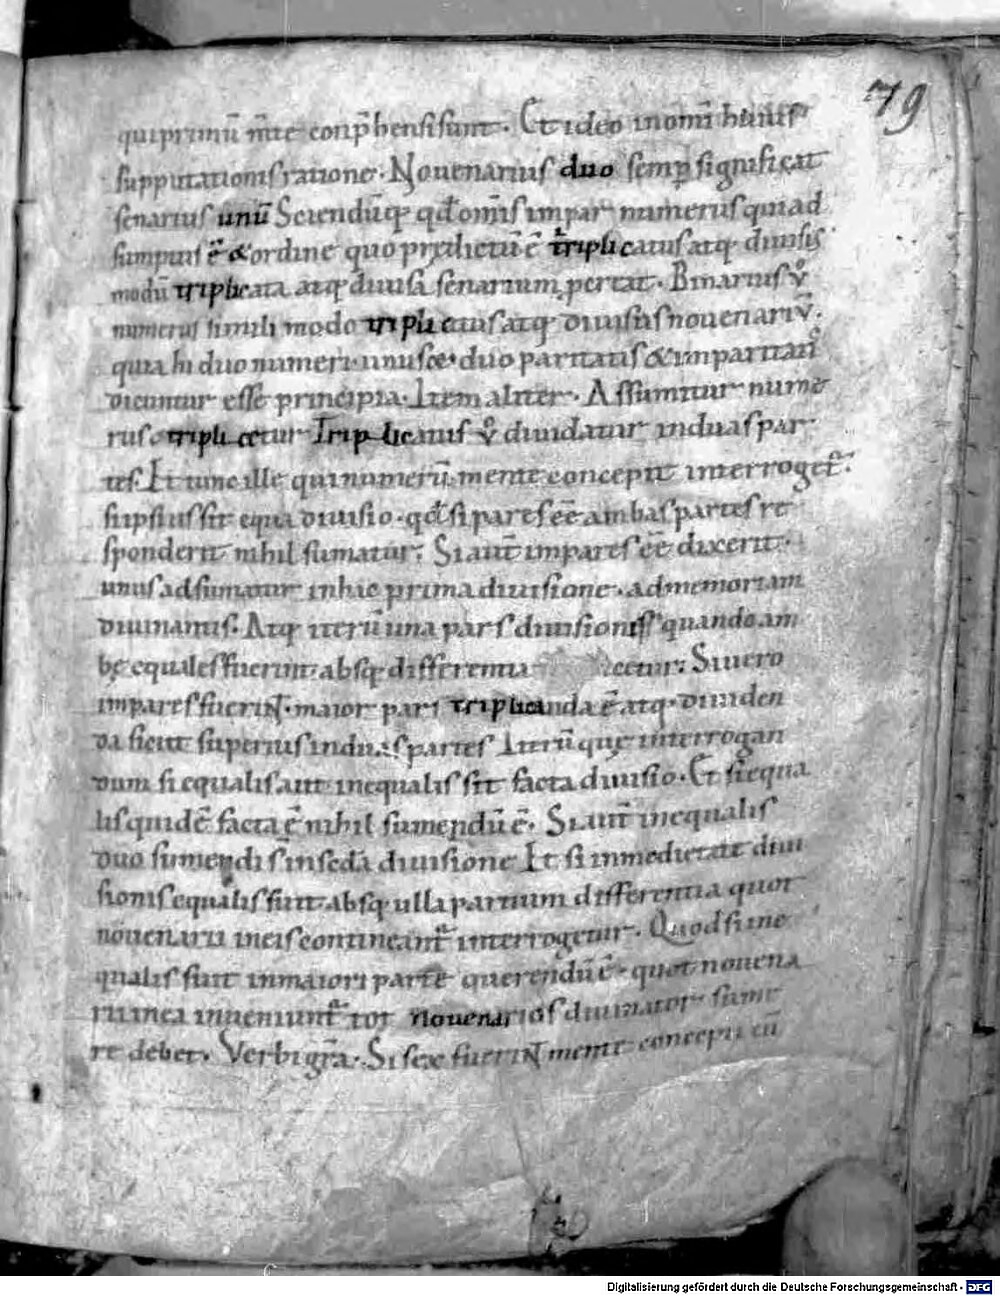 79
qui primū m̄te conp̄hensi sunt. Et ideo in om̄i huius
supputationis ratione. Nouenarius duo semp̱ significat
senarius unū Sciendūq; qd̄ om̄is impar numerus qui ad
sumptus ē & ordine quo prędictū ē triplicatus atq; diuisis
modū triplicata atq; diuisa senarium p̱ertat. Binarius v̊
numerus simili modo triplicatus atq; diuisus nouenariū.
quia hi duo numeri unus & duo paritatis & imparitatis
dicuntur esse principia. Item aliter. Assumitur nume
rus & triplicetur Triplicatus v̊ diuidatur in duas par
tes. Et tunc ille qui numerū mente concepit interroget̄.
si ipsius sit equa diuisio. qd̄ si pares eē ambas partes re
sponderit nihil sumatur. Si aut̄ impares eē dixerit.
unus adsumatur in hac prima diuisione. ad memoriam
diuinantis. Atq; iterū una pars diuisionis quando am
bę equales fuerint absq; differentia cetur. Si uero
impares fuerint. maior pars triplicanda ē atq; diuiden
da sicut superius in duas partes Iterūquę interrogan
dum si equalis aut inequalis sit facta diuisio. Et si equa
lis quidē facta ē nihil sumendū ē. Si aut̄ inequalis
duo sumendi s̄ in secd̄a diuisione Et si in medietate diui
sionis equalis sunt absq; ulla partium differentia quot
nouenarii in eis contineant̄ interrogetur. Quod si ine
qualis sunt in maiori parte querendū ē. quot nouena
rii in ea inueniunt̄ tot nouenarios diuinator sume
re debet. Verbi gr̄a. Si sex fuerint mente concepti cū
Digitalisierung gefördert durch die Deutsche Forschungsgemeinschaft - DFG